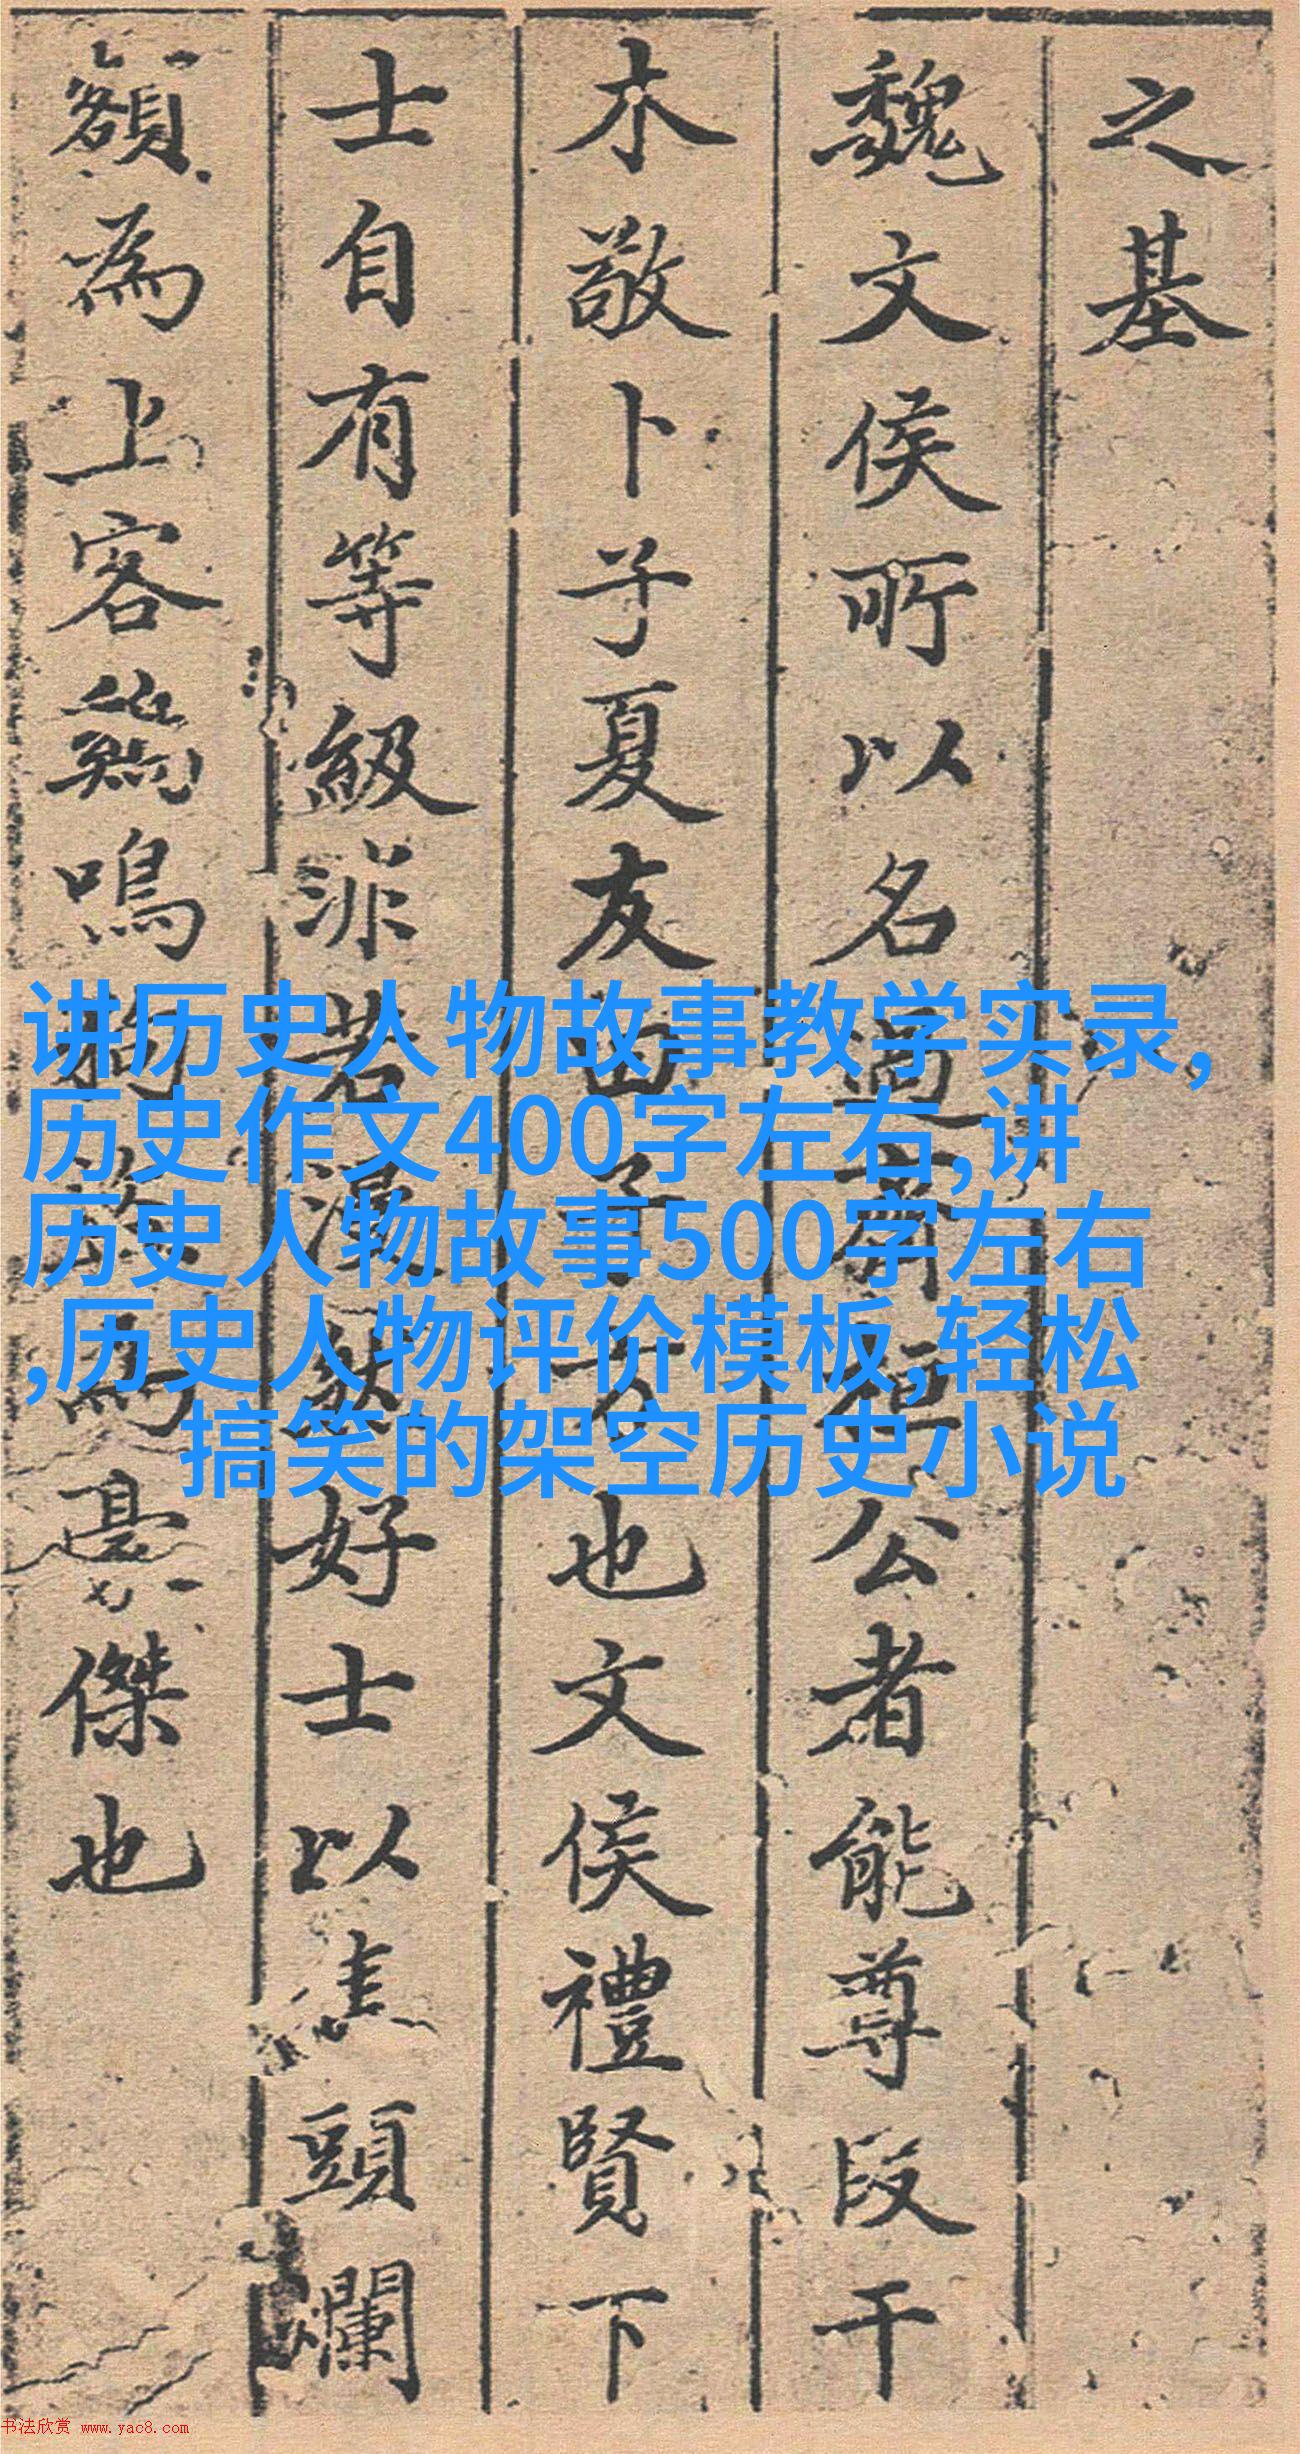 之基
魏文侯所以名過齊桓公者能尊段干
木敬卜子夏友田子方也文侯禮賢下
士自有等級非若漫然好士以焦頭爛
額為上客鷄鳴狗盗為豪傑也
讲历史人物故事教学实录,
历史作文400字左右,讲
历史人物故事500字左右
,历史人物评价模板,轻松
搞笑的架空历史小说
书法欣赏 www.yac8.com